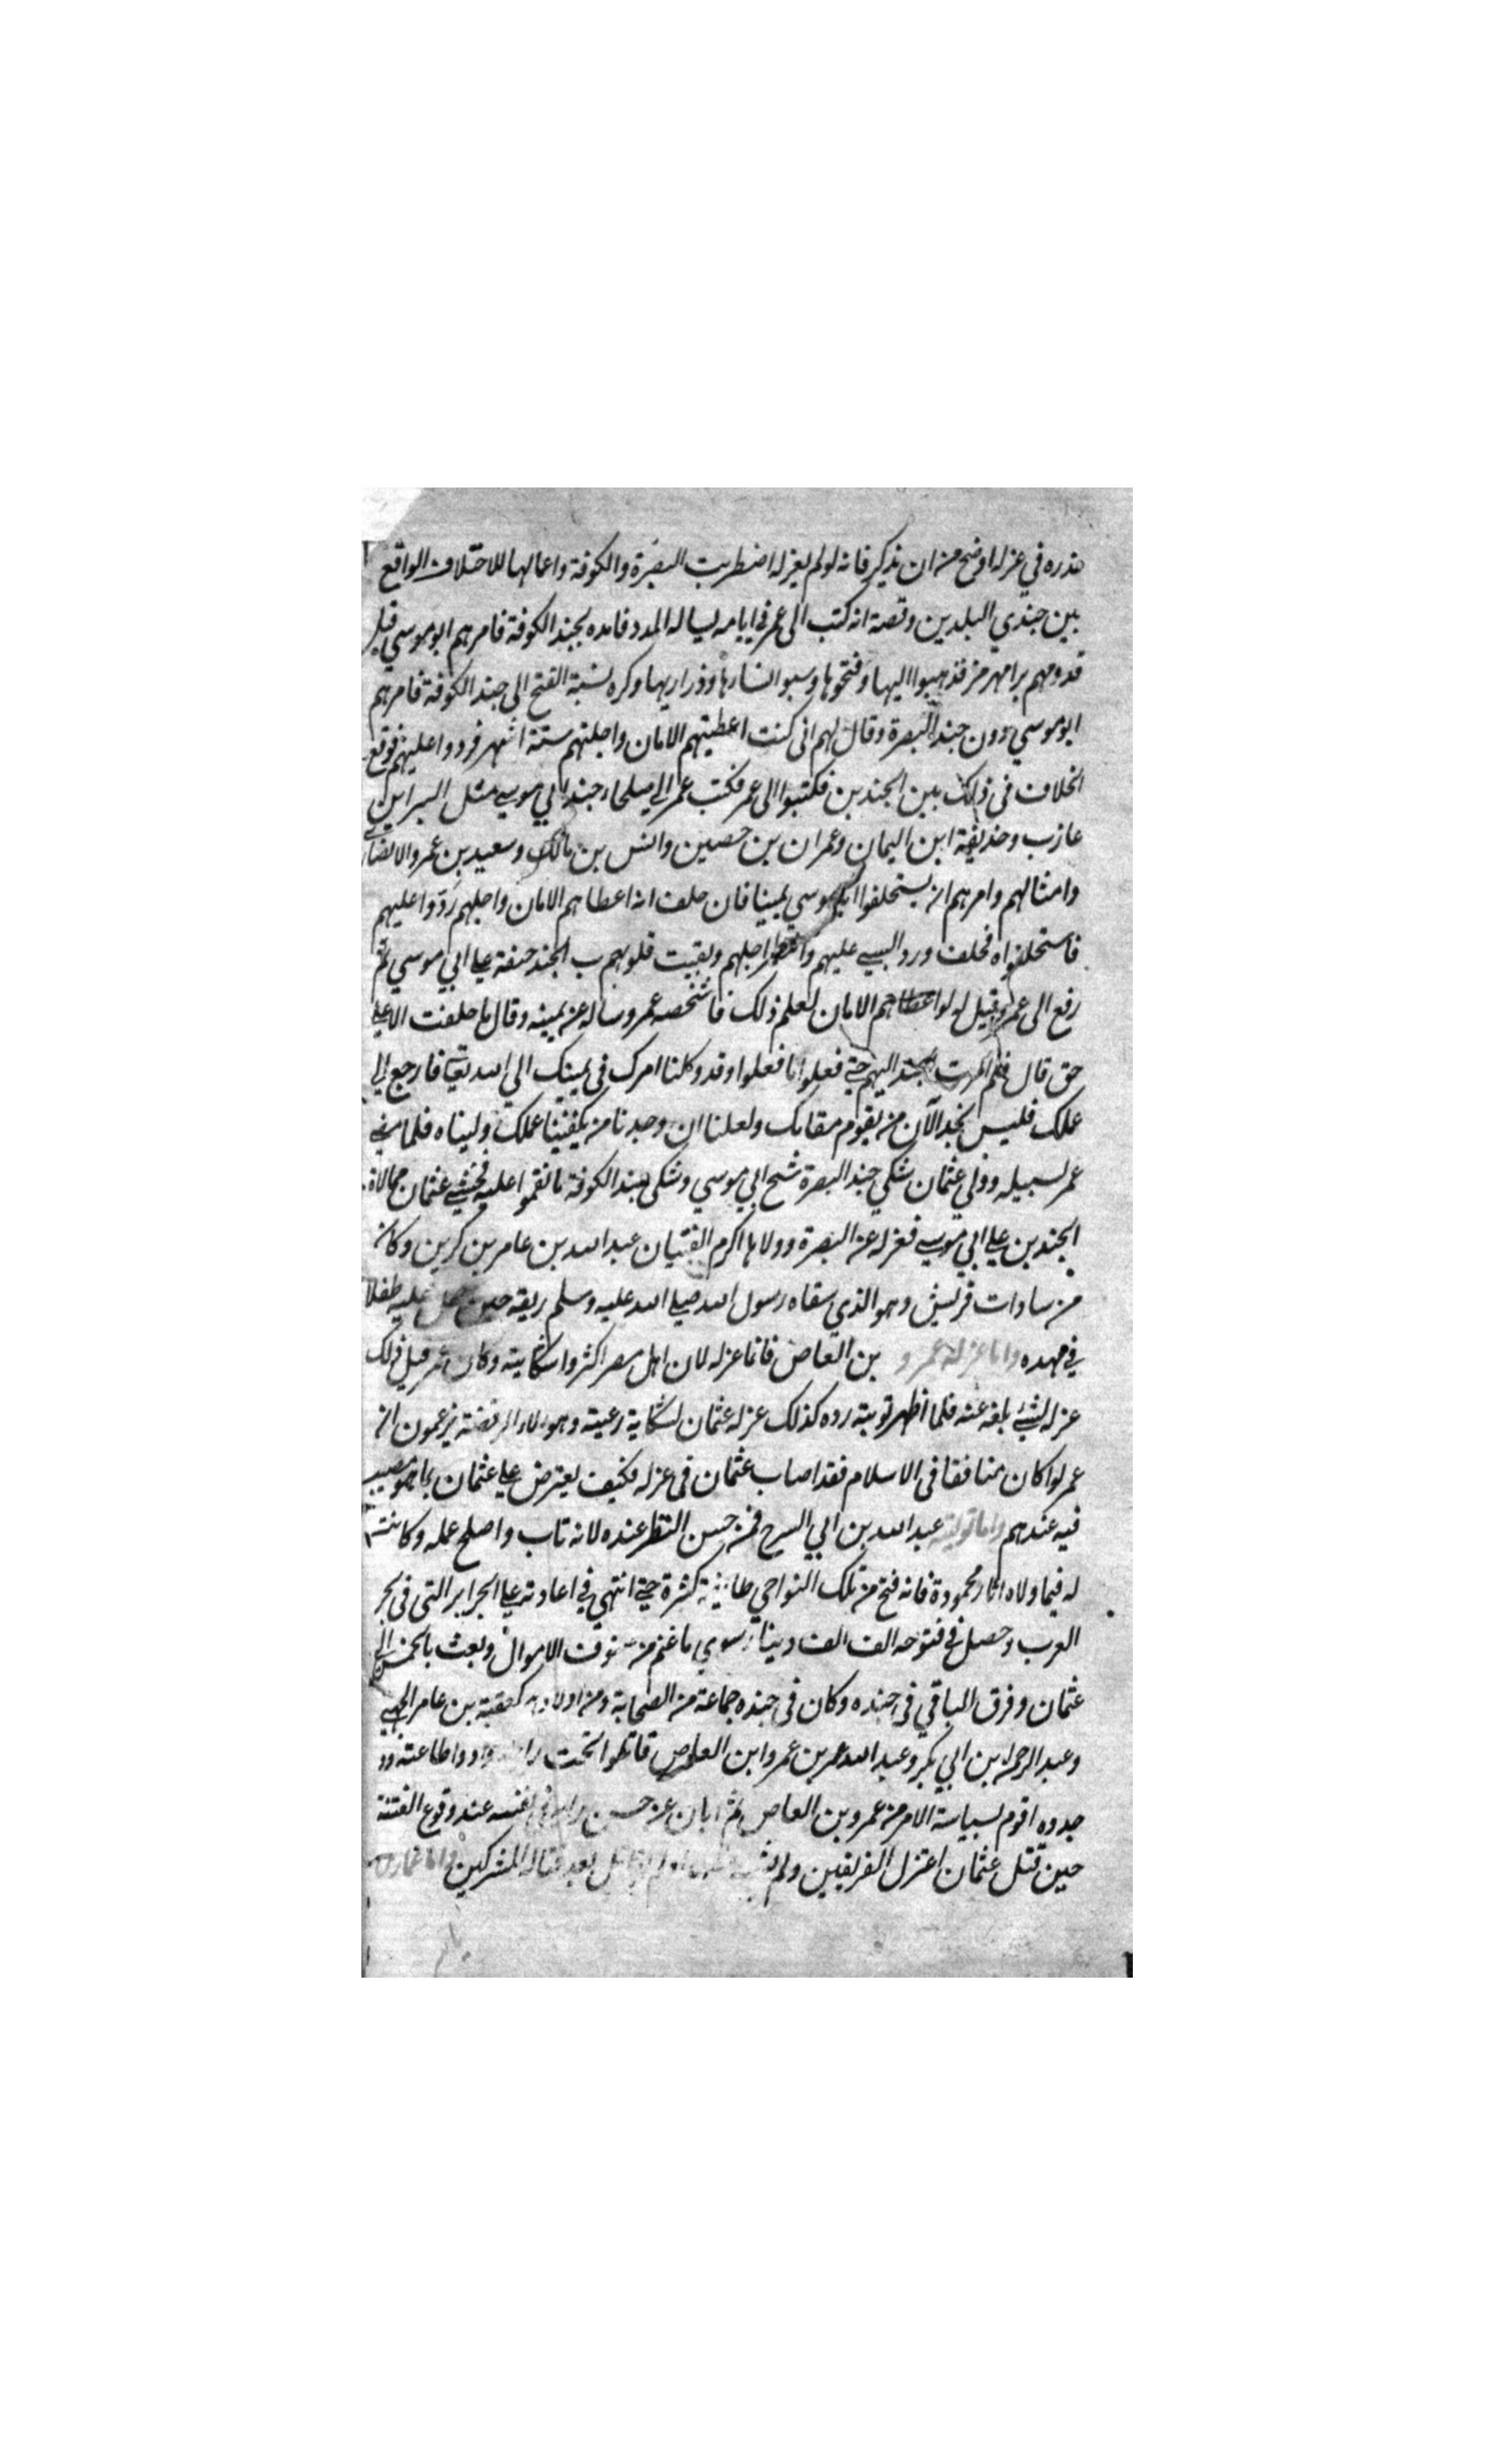 عذره في عزله اوضح من ان يذكر فانه لو لم يعزله اضطربت البصرة والكوفة واعمالها للاختلاف الواقع
بين جندي البلدين وقصة انه كتب الى عمر في ايامه يساله المدد فامده بجند الكوفة فامرهم ابو موسي قبل
قدومهم برامهرمز فذهبوا اليها وفتحوها وسبوا نسارها وذراريها وكره نسبة الفتح الى جند الكوفة فامرهم
ابو موسي دون جند البصرة وقال لهم اني كنت اعطيتهم الامان واجلتهم ستة اشهر فردوا عليهم فوقع
الخلاف في ذلك بين الجندين فكتبوا الى عمر فكتب عمر الى صلحاء جند ابي موسي مثل البراء بن
عازب وحذيفة ابن اليمان وعمران بن حصين وانس بن مالك وسعيد بن عمرو الانصاري
وامثالهم وامرهم ان يستحلفوا ابا موسي يمينا فان حلف انه اعطاهم الامان واجلهم ردوا عليهم
فاستحلفوه فحلف ورد السبي عليهم وانتظر اجلهم وبقيت قلوب الجند حنقة علي ابي موسي ثم
رفع الى عمر وقيل له لو اعطاهم الامان لعلم ذلك فاشخصه عمر وساله عن يمينه وقال ما حلفت الا علي
حق قال فلم امرت الجند اليهم حتي فعلوا ما فعلوا وقد وكلنا امرك في يمينك الي الله تعالي فارجع الي
عملك فليس نجد الآن من يقوم مقامك ولعلنا ان وجدنا من يكفينا عملك وليناه فلما مضي
عمر لسبيله وولي عثمان شكي جند البصرة شح ابي موسي وشكى جند الكوفة ما نقموا عليه فخشي عثمان ممالاة
الجندين علي ابي موسي فعزله عن البصرة وولاها اكرم الفتيان عبد الله بن عامر بن كرين وكان
من سادات قريش وهو الذي سقاه رسول الله صلي الله عليه وسلم ريقه حين حمل عليه طفلا
في مهده واما عزله عمرو بن العاص فانما عزله لان اهل مصر اكثروا شكايته وكان عمر قبل ذلك
عزله لشيء بلغه عنه فلما اظهر توبته رده كذلك عزله عثمان لشكاية رعيته وهولاء الرفضة يزعمون ان
عمرلوا كان منافقا في الاسلام فقد اصاب عثمان في عزله فكيف يعترض علي عثمان بما هو مصيب
فيه عندهم واما توليته عبد الله بن ابي السرح فمن حسن النظر عنده لانه تاب واصلح عمله وكانت
له فيما ولاه اثار محمودة فانه فتح من تلك النواحي طايفة كثرة حتي انتهي في اعادته علي الجزاير التي في بحر
العرب وحصل في فتوحه الف الف دينار سوي ما غنم من صنوف الاموال وبعث بالخمس الي
عثمان وفرق الباقي في جنده وكان في جنده جماعة من الصحابة ومن اولادهم كعقبة بن عامر الجهني
وعبد الرحمن بن ابي بكر وعبد الله بن عمرو ابن العاص قاتلوا تحت رايته وادوا طاعته ووجدوه
اقوم لسياسة الامر من عمرو بن العاص ثم ابان عن حسن رايه في نفسه عند وقوع الفتنة
حين قتل عثمان اعتزل الفريقين ولم يشهد بعد قتال المشركين واما